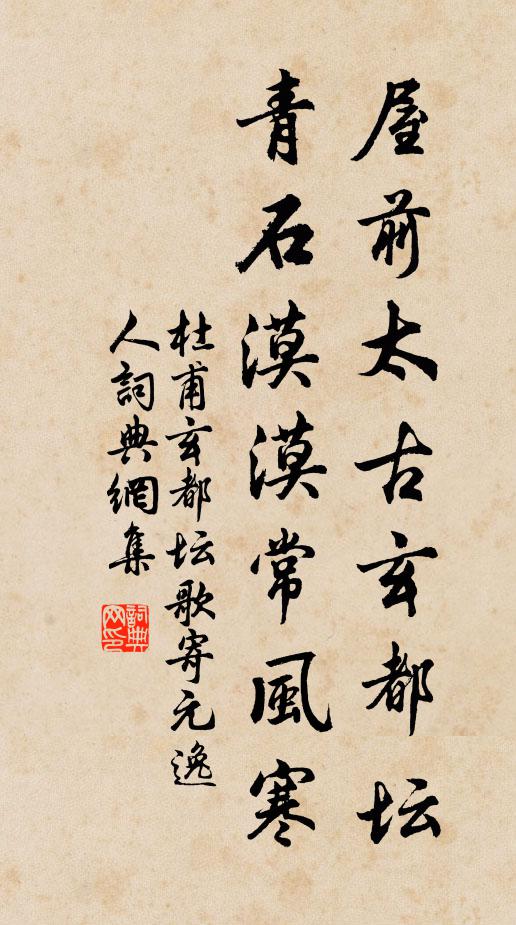 屋前太古玄都坛
青石漠漠常風寒
杜甫玄都坛歌寄元逸
人詞典網集
詞典
网印